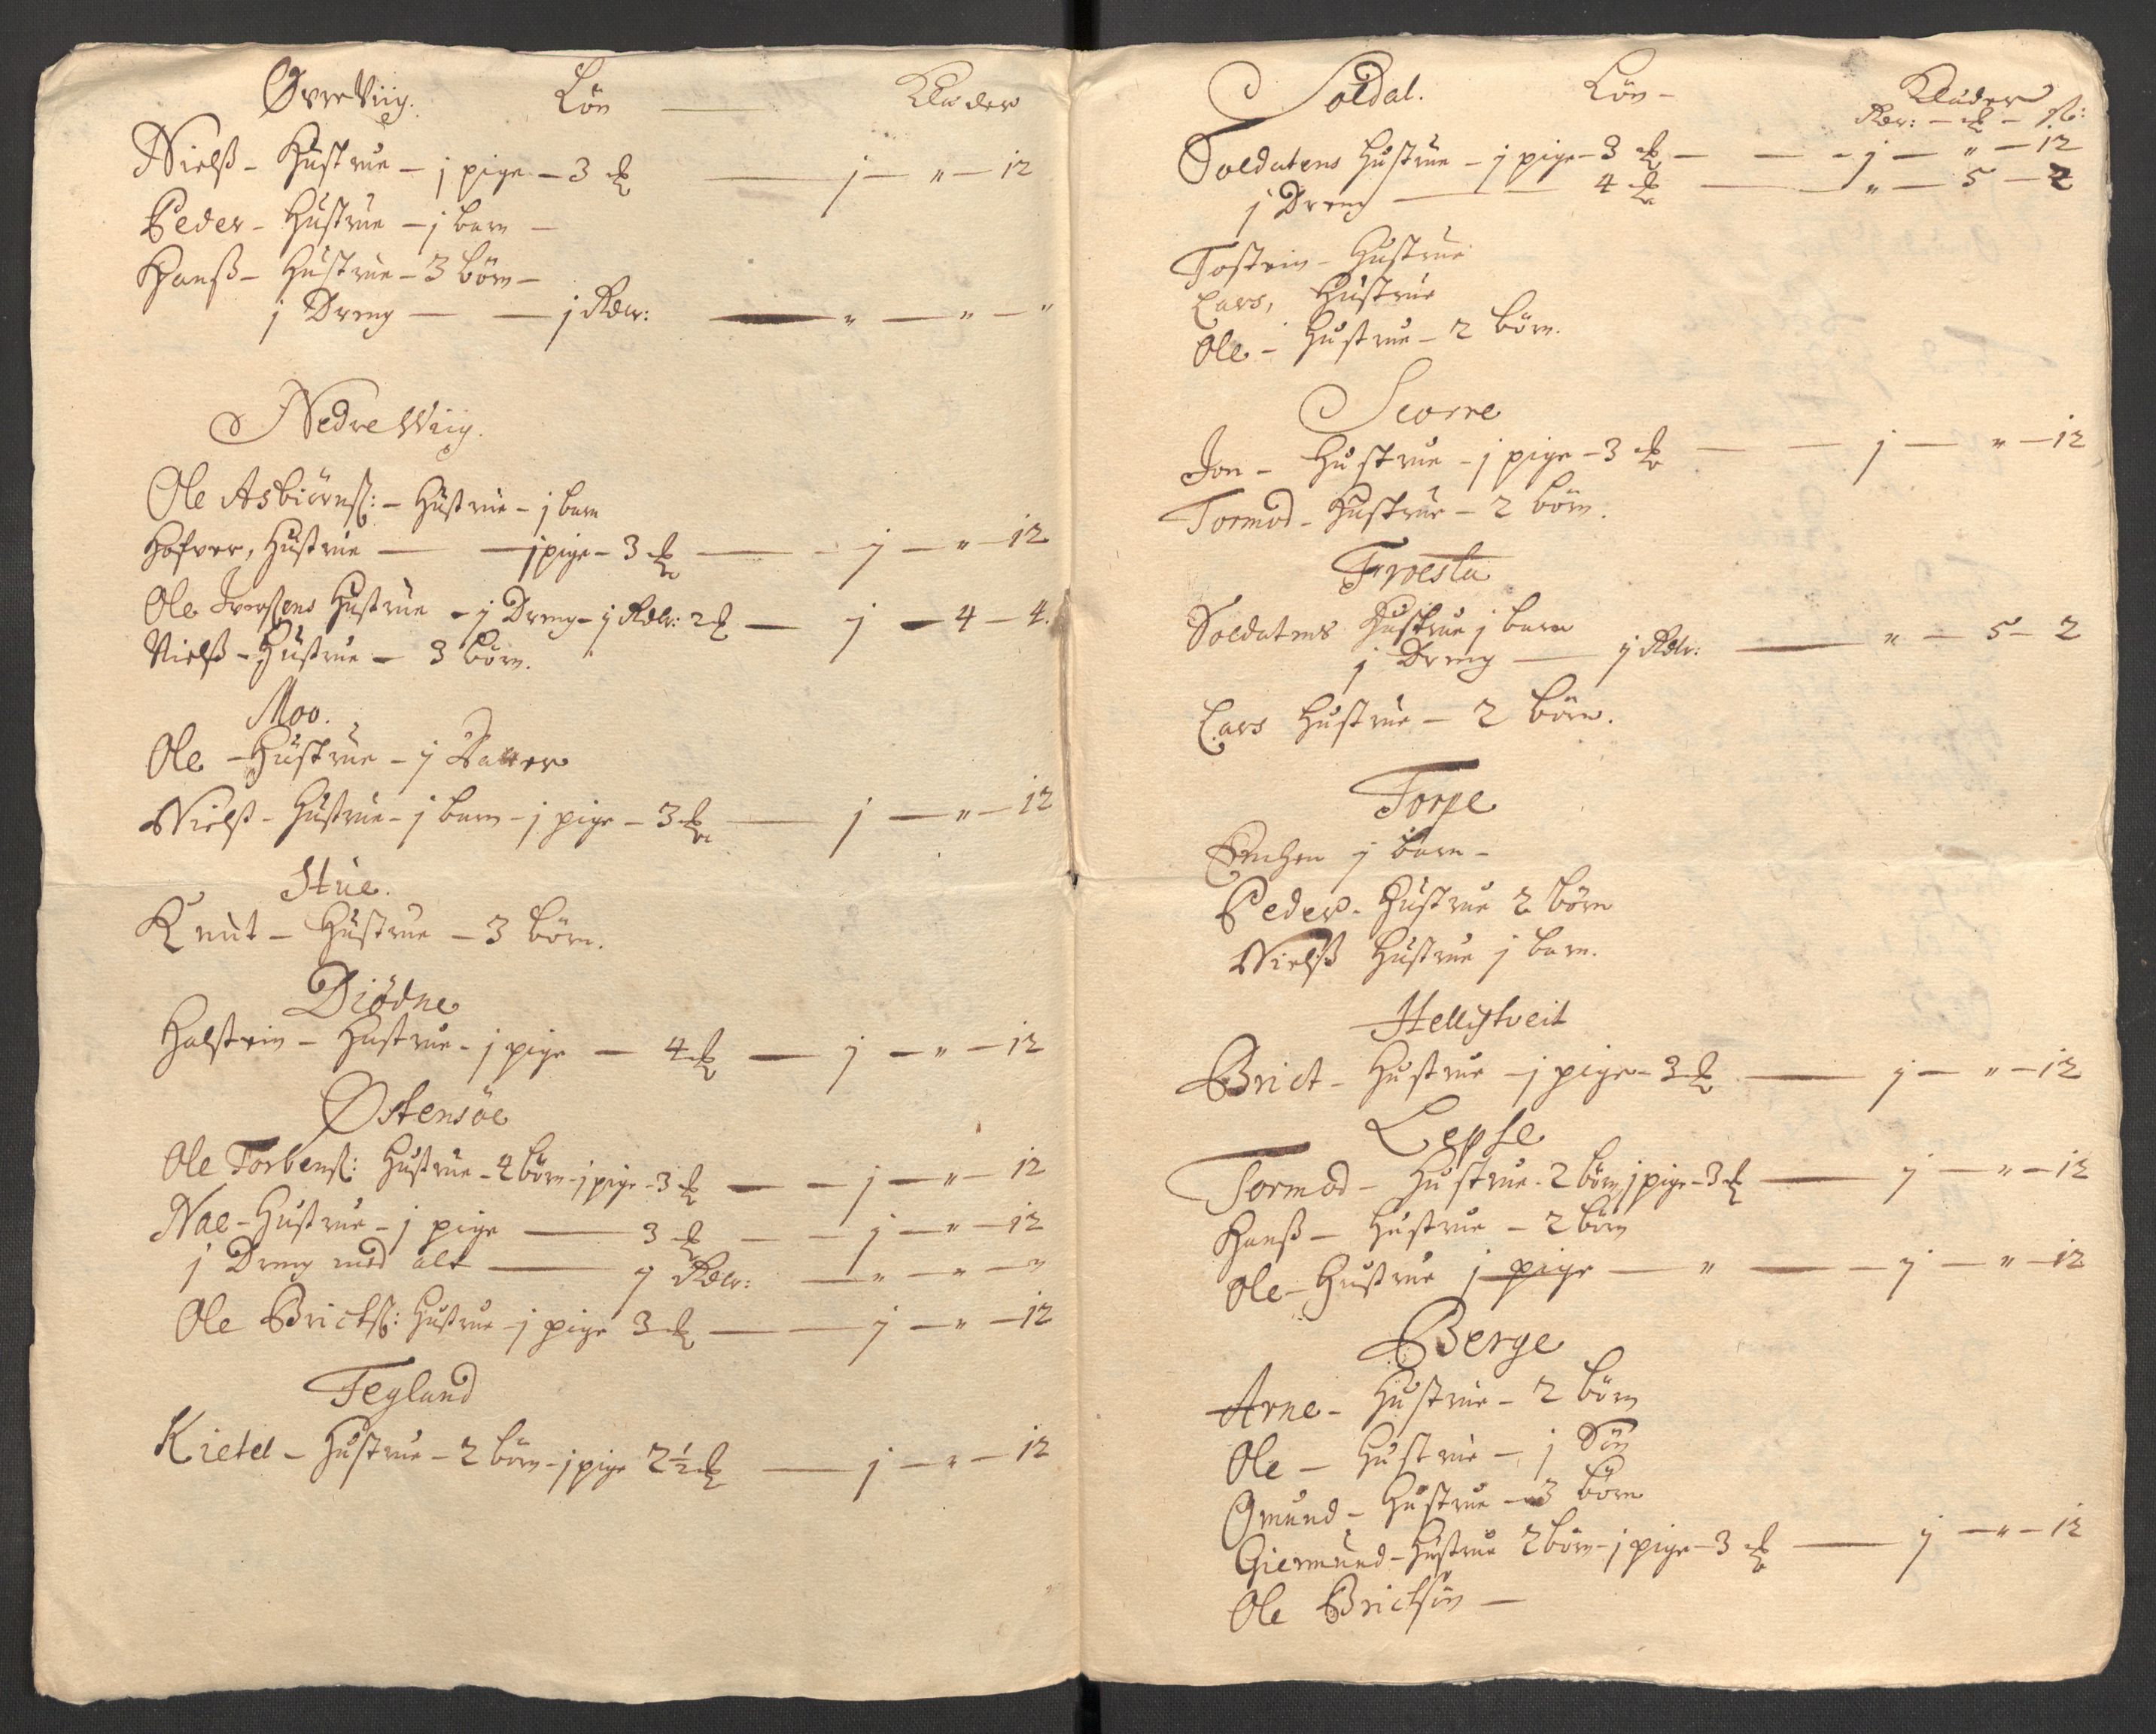 Øvre Viig. Løn — Klæder
Nielß - Hustrue - j pige - 3 ⅆ — j — " — 12
Peder - Hustrue - j barn -
Hanß - Hustrue - 3 børn -
j Dreng — — j Rdlr: — " — " — "
Nedre Wiig.
Ole Asbiørnß: - Hustrue - j barn
Hustrue — j pige - 3 ⅆ — j — " — 12
Ole Iverßens Hustrue - j Dreng - j Rdlr: 2 ⅆ — j — 4 — 4.
Nielß - Hustrue - 3 børn.
Moo.
Ole - Hustrue - j
Nielß - Hustrue - j barn - j pige - 3 ⅆ — j — " — 12
Stue.
Knut - Hustrue - 3 børn.
Diødne
Halstein - Hustrue - j pige — 4 ⅆ — j — " — 12
Østensøe
Ole Torbenß: Hustrue - 4 børn - j pige - 3 ⅆ — j — " — 12
Nae - Hustrue - j pige — 3 ⅆ — j — " — 12
j Dreng med alt — j Rdlr: — " — " — "
Ole Brictß: Hustrue - j pige 3 ⅆ — j — " — 12
Tegland
Kietel - Hustrue - 2 børn - j pige 2½ ⅆ — j — " — 12
Soldal. Løn - Klæder
Rdr: — ⅆ — ß:
Soldatens Hustrue - j pige - 3 ⅆ — j — " — 12
j Dreng — 4 ⅆ — " — 5 — 2
Tostein - Hustrue
Lars, Hustrue
Ole - Hustrue - 2 børn.
Scorre
Jon - Hustrue - j pige - 3 ⅆ — j — " — 12
Tormod - Hustrue - 2 børn.
Froesta
Soldatens Hustrue j barn
j Dreng — j Rdlr: — " — 5 — 2
Lars Hustrue - 2 børn.
Torpe
Enchen j barn -
Peder - Hustrue 2 børn
Nielß Hustrue j barn.
Hellistveit
Brict - Hustrue - j pige - 3 ⅆ — j — " — 12
Lepse
Tormod - Hustrue - 2 børn j pige - 3 ⅆ — j — " — 12
Hanß - Hustrue - 2 børn
Ole - Hustrue j pige — " — j — " — 12
Berge
Arne - Hustrue - 2 børn
Ole - Hustrue - j Søn
Omund - Hustrue - 3 børn
Giermund - Hustrue 2 børn - j pige - 3 ⅆ — j — " — 12
Ole Brictsøn —